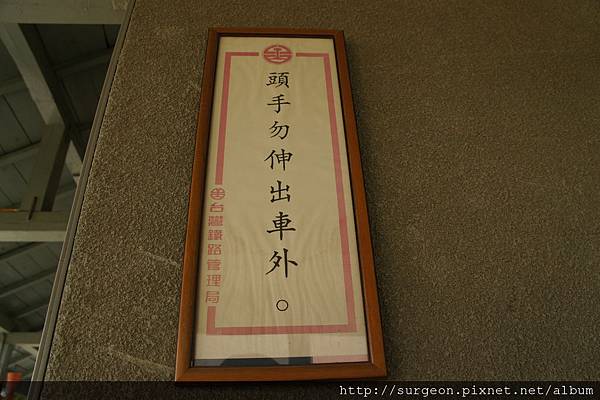 頭手勿伸出車外。
台灣鐵路管理局
http://surgeon.pixnet.net/album